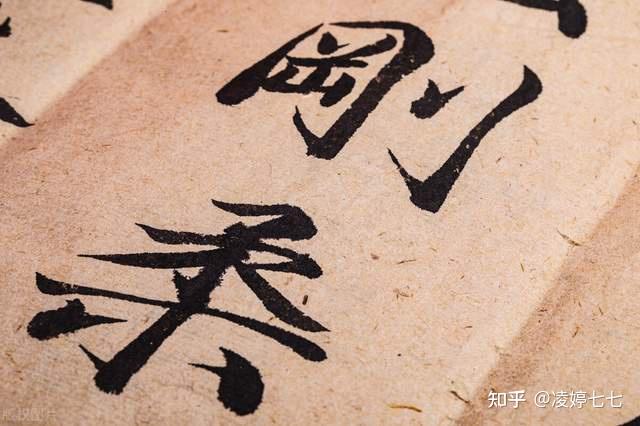 剛
柔
知乎 @凌婷七七